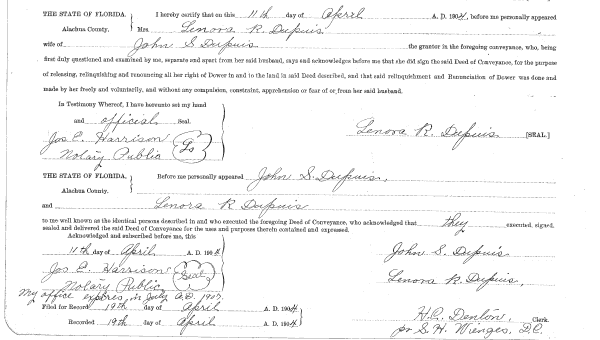 THE STATE OF FLORIDA, I hereby certify that on this 11th day of April A. D. 1904, before me personally appeared
Alachua County. Mrs Lenora R. Dupuis
wife of John S Dupuis the grantor in the foregoing conveyance, who, being
first duly questioned and examined by me, separate and apart from her said husband, says and acknowledges before me that she did sign the said Deed of Conveyance, for the purpose
of releasing, relinquishing and renouncing all her right of Dower in and to the land in said Deed described, and that said relinquishment and Renunciation of Dower was done and
made by her freely and voluntarily, and without any compulsion, constraint, apprehension or fear of or from her said husband.
In Testimony Whereof, I have hereunto set my hand
and official Seal.
Jos E. Harrison
Notary Public
Lenora R. Dupuis [SEAL]
THE STATE OF FLORIDA, Before me personally appeared John S. Dupuis,
Alachua County.
and Lenora R Dupuis
to me well known as the identical persons described in and who executed the foregoing Deed of Conveyance, who acknowledged that they executed, signed,
sealed and delivered the said Deed of Conveyance for the uses and purposes therein contained and expressed.
Acknowledged and subscribed before me, this
11th day of April A. D. 1904
John S. Dupuis
Jos E. Harrison Seal
Notary Public
Lenora R. Dupuis,
My office expires in July A.D. 1907.
Filed for Record 19th day of April A. D. 1904
H.C. Denton, Clerk.
Recorded 19th day of April A. D. 1904
pr S. H. Wienges, D.C.